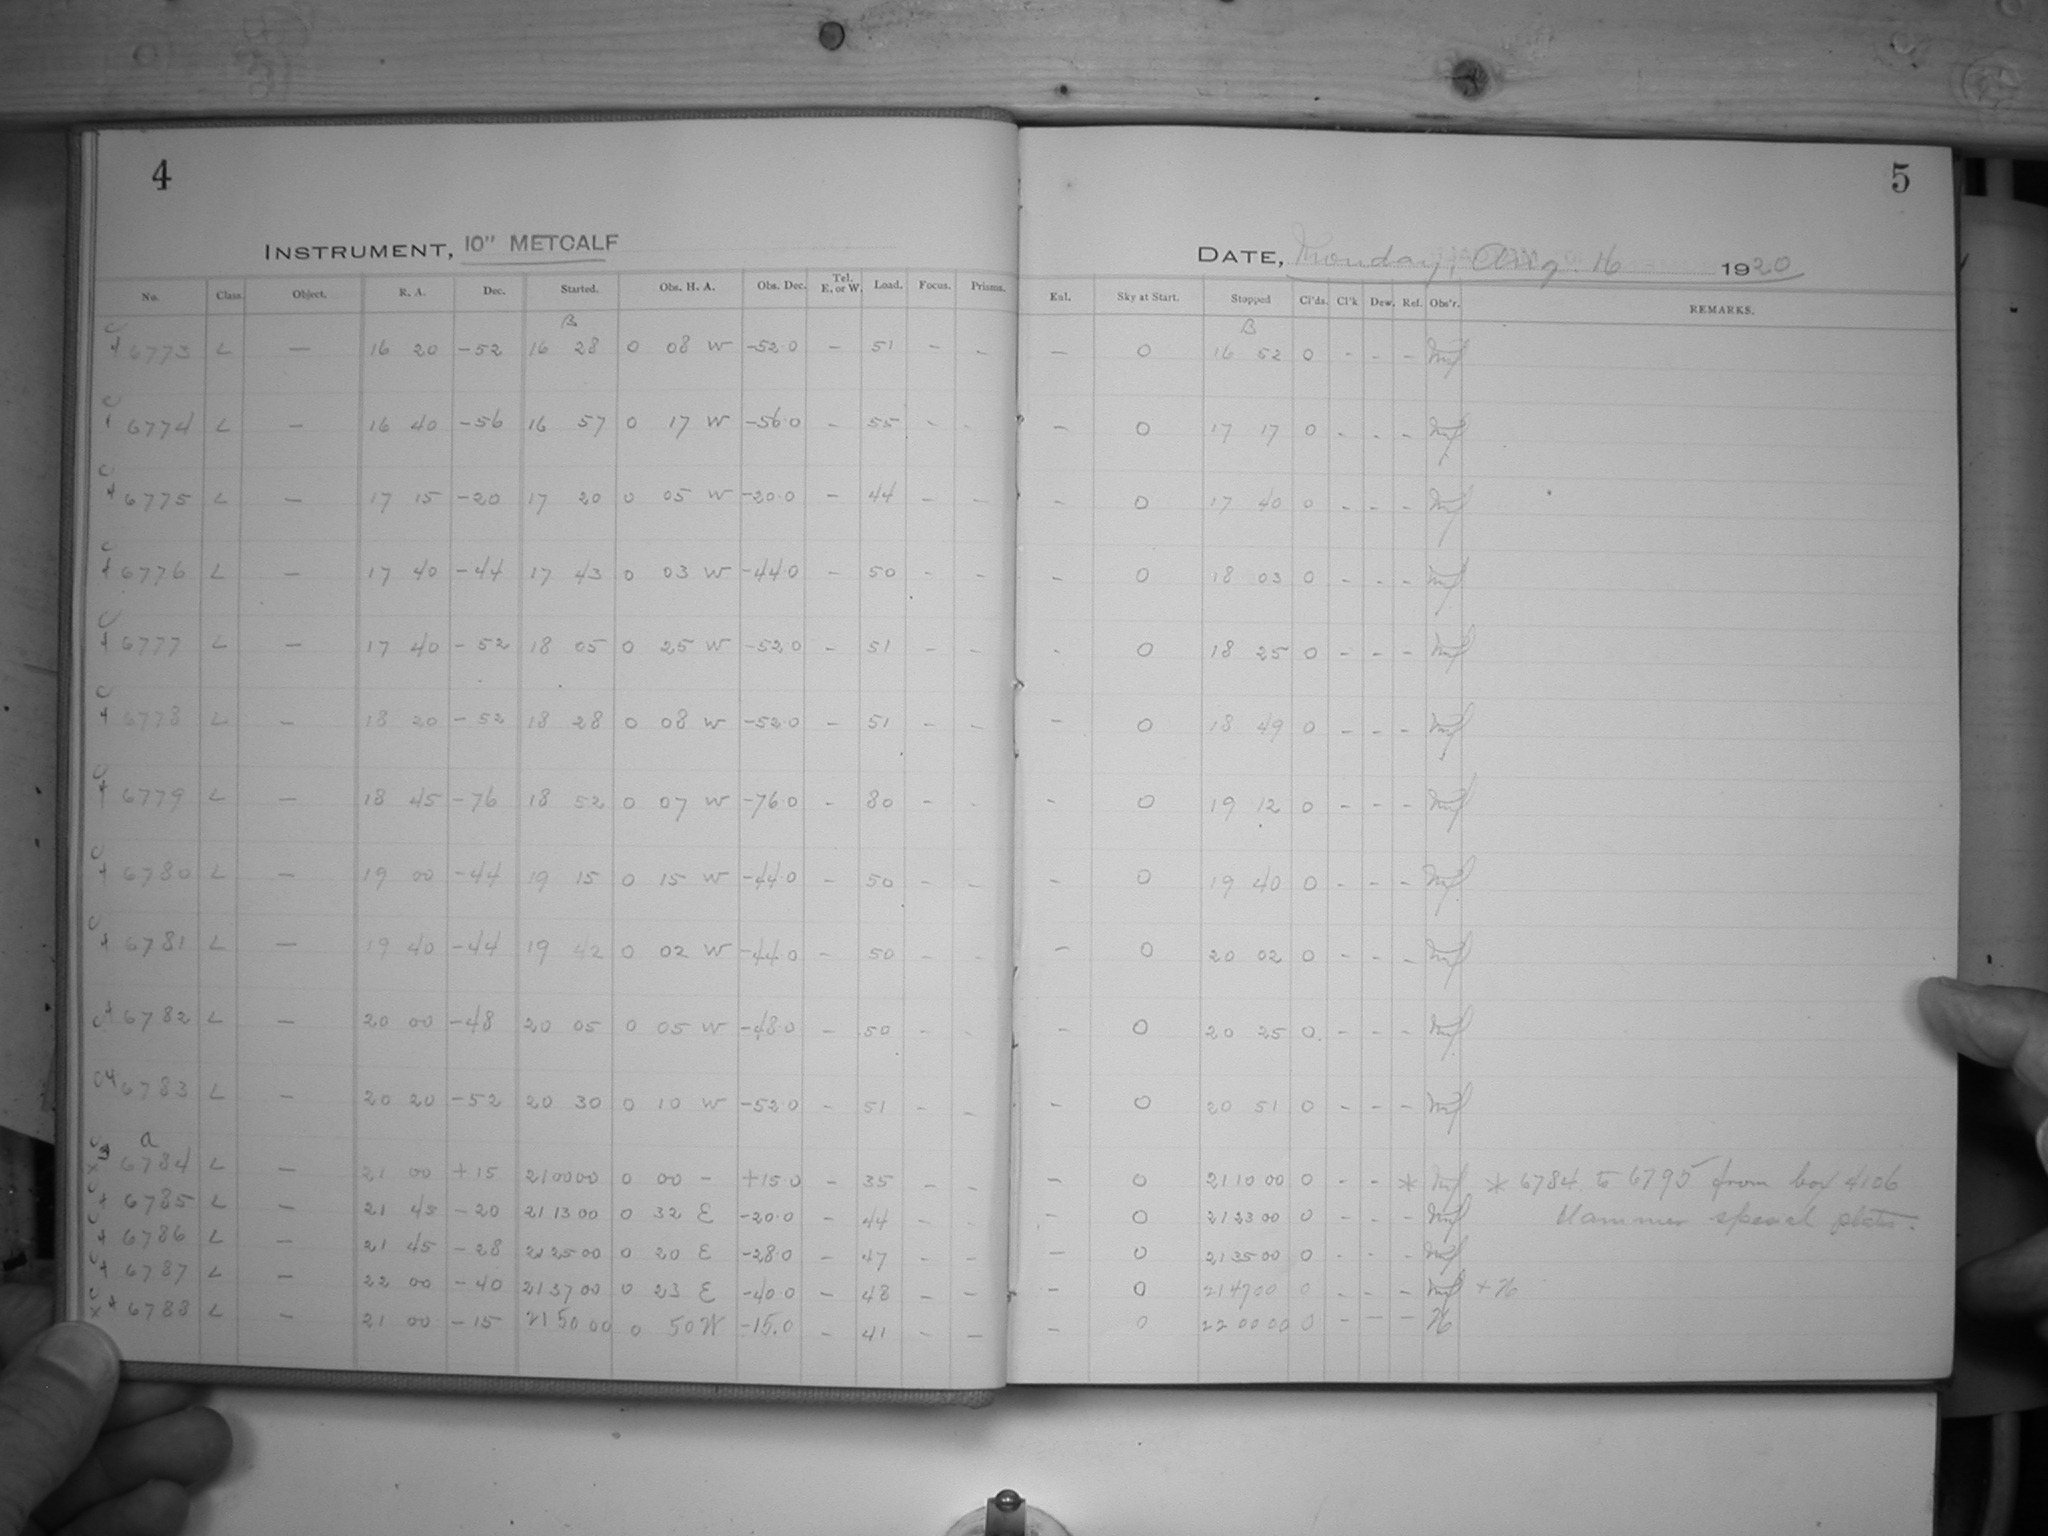 4
INSTRUMENT, 10" METCALF
No. Class. Object. R. A. Dec. Started. Obs. H. A. Obs. Dec. Tel. E. or W. Load. Focus. Prisms.
B
6773 L — 16 20 -52 16 28 0 08 W -52.0 - 51 - -
6774 L — 16 40 -56 16 57 0 17 W -56.0 - 55 - -
6775 L — 17 15 -20 17 20 0 05 W -20.0 - 44 - -
6776 L — 17 40 -44 17 43 0 03 W -44.0 - 50 - -
6777 L — 17 40 -52 18 05 0 25 W -52.0 - 51 - -
6778 L — 18 20 -52 18 28 0 08 W -52.0 - 51 - -
6779 L — 18 45 -76 18 52 0 07 W -76.0 - 80 - -
6780 L — 19 00 -44 19 15 0 15 W -44.0 - 50 - -
6781 L — 19 40 -44 19 42 0 02 W -44.0 - 50 - -
6782 L — 20 00 -48 20 05 0 05 W -48.0 - 50 - -
6783 L — 20 20 -52 20 30 0 10 W -52.0 - 51 - -
a
6784 L — 21 00 +15 21 00 00 0 00 - +15.0 - 35 - -
6785 L — 21 45 -20 21 13 00 0 32 E -20.0 - 44 - -
6786 L — 21 45 -28 21 25 00 0 20 E -28.0 - 47 - -
6787 L — 22 00 -40 21 37 00 0 23 E -40.0 - 48 - -
6788 L — 21 00 -15 21 50 00 0 50 W -15.0 - 41 - -
5
DATE, Monday, Aug. 16 1920
Eal. Sky at Start. Stopped Cl'ds. Cl'k Dew. Ref. Obs'r. REMARKS.
B
— 0 16 52 0 - - -
— 0 17 17 0 - - -
— 0 17 40 0 - - -
— 0 18 03 0 - - -
- 0 18 25 0 - - -
— 0 18 49 0 - - -
- 0 19 12 0 - - -
- 0 19 40 0 - - -
— 0 20 02 0 - - -
— 0 20 25 0 - - -
- 0 20 51 0 - - -
— 0 21 10 00 0 - - * * 6784 to 6795 from box 4106
— 0 21 23 00 0 - - - Hammer special plates.
— 0 21 35 00 0 - - -
— 0 21 47 00 0 - - - + H
— 0 22 00 00 0 - - - H